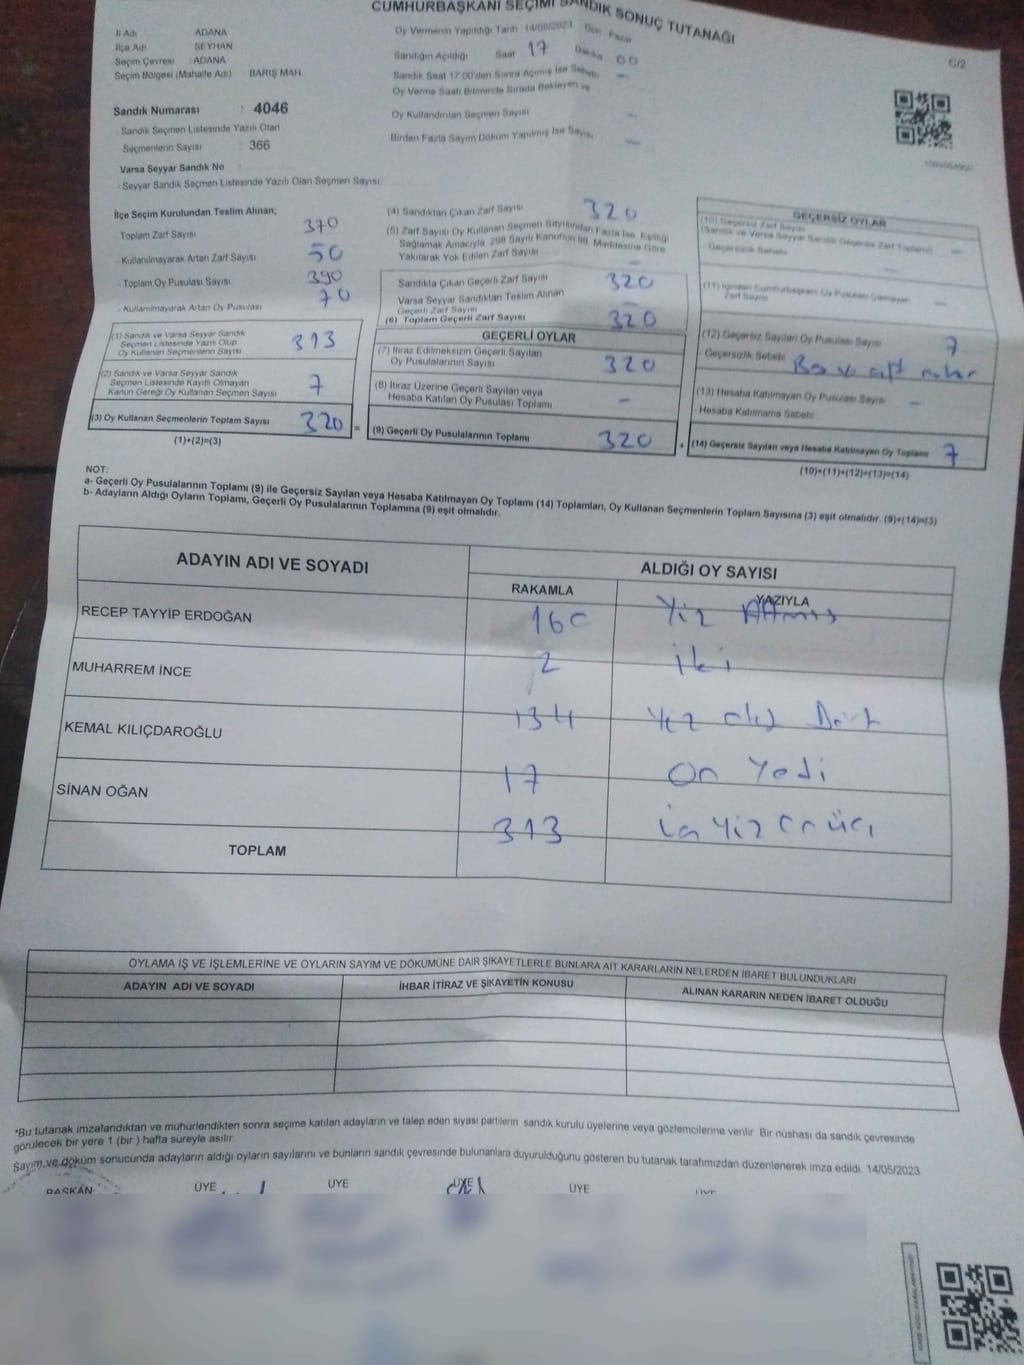 CUMHURBAŞKANI SEÇİMİ SANDIK SONUÇ TUTANAĞI
İl Adı ADANA
İlçe Adı SEYHAN
Seçim Çevresi : ADANA
Seçim Bölgesi (Mahalle Adı) BARIŞ MAH
Sandık Numarası : 4046
- Sandık Seçmen Listesinde Yazılı Olan
Seçmenlerin Sayısı : 366
Varsa Seyyar Sandık No
- Seyyar Sandık Seçmen Listesinde Yazılı Olan Seçmen Sayısı
Oy Vermenin Yapıldığı Tarih 14/05/2023 Gün Pazar
Sandığın Açıldığı Saat 17 Dakika 00
Sandık Saat 17:00'den Sonra Açılmış İse Sebebi –
Oy Verme Saati Bitiminde Sırada Bekleyen ve
Oy Kullandırılan Seçmen Sayısı –
Birden Fazla Sayım Döküm Yapılmış İse Sayısı –
6/2
İlçe Seçim Kurulundan Teslim Alınan;
- Toplam Zarf Sayısı 370
- Kullanılmayarak Artan Zarf Sayısı 50
- Toplam Oy Pusulası Sayısı 390
- Kullanılmayarak Artan Oy Pusulası 70
(1) Sandık ve Varsa Seyyar Sandık
Seçmen Listesinde Yazılı Olup
Oy Kullanan Seçmenlerin Sayısı 313
(2) Sandık ve Varsa Seyyar Sandık
Seçmen Listesinde Kayıtlı Olmayan
Kanun Gereği Oy Kullanan Seçmen Sayısı 7
(3) Oy Kullanan Seçmenlerin Toplam Sayısı 320 =
(1)+(2)=(3)
(4) Sandıktan Çıkan Zarf Sayısı 320
(5) Zarf Sayısı Oy Kullanan Seçmen Sayısından Fazla İse, Eşitliği
Sağlamak Amacıyla, 298 Sayılı Kanunun 98. Maddesine Göre
Yakılarak Yok Edilen Zarf Sayısı –
Sandıkta Çıkan Geçerli Zarf Sayısı 320
Varsa Seyyar Sandıktan Teslim Alınan
Geçerli Zarf Sayısı –
(6) Toplam Geçerli Zarf Sayısı 320
GEÇERLİ OYLAR
(7) İtiraz Edilmeksizin Geçerli Sayılan
Oy Pusulalarının Sayısı 320
(8) İtiraz Üzerine Geçerli Sayılan veya
Hesaba Katılan Oy Pusulası Toplamı –
(9) Geçerli Oy Pusulalarının Toplamı 320 +
GEÇERSİZ OYLAR
(10) Geçersiz Zarf Sayısı
(Sandık ve Varsa Seyyar Sandık Geçersiz Zarf Toplamı) –
- Geçersizlik Sebebi –
(11) İçinden Cumhurbaşkanı Oy Pusulası Çıkmayan
Zarf Sayısı –
(12) Geçersiz Sayılan Oy Pusulası Sayısı 7
- Geçersizlik Sebebi Boş ve çift mühür
(13) Hesaba Katılmayan Oy Pusulası Sayısı –
- Hesaba Katılmama Sebebi
(14) Geçersiz Sayılan veya Hesaba Katılmayan Oy Toplamı 7
(10)+(11)+(12)+(13)=(14)
NOT:
a- Geçerli Oy Pusulalarının Toplamı (9) ile Geçersiz Sayılan veya Hesaba Katılmayan Oy Toplamı (14) Toplamları, Oy Kullanan Seçmenlerin Toplam Sayısına (3) eşit olmalıdır. (9)+(14)=(3)
b- Adayların Aldığı Oyların Toplamı, Geçerli Oy Pusulalarının Toplamına (9) eşit olmalıdır.
ADAYIN ADI VE SOYADI ALDIĞI OY SAYISI
RAKAMLA YAZIYLA
RECEP TAYYİP ERDOĞAN 160 Yüz Altmış
MUHARREM İNCE 2 iki
KEMAL KILIÇDAROĞLU 134 Yüz otuz Dört
SİNAN OĞAN 17 On Yedi
TOPLAM 313 üçyüz onüç
OYLAMA İŞ VE İŞLEMLERİNE VE OYLARIN SAYIM VE DÖKÜMÜNE DAİR ŞİKAYETLERLE BUNLARA AİT KARARLARIN NELERDEN İBARET BULUNDUKLARI
ADAYIN ADI VE SOYADI İHBAR İTİRAZ VE ŞİKAYETİN KONUSU ALINAN KARARIN NEDEN İBARET OLDUĞU
*Bu tutanak imzalandıktan ve mühürlendikten sonra seçime katılan adayların ve talep eden siyasi partilerin sandık kurulu üyelerine veya gözlemcilerine verilir. Bir nüshası da sandık çevresinde
görülecek bir yere 1 (bir) hafta süreyle asılır.
Sayım ve döküm sonucunda adayların aldığı oyların sayılarını ve bunların sandık çevresinde bulunanlara duyurulduğunu gösteren bu tutanak tarafımızdan düzenlenerek imza edildi. 14/05/2023
BAŞKAN ÜYE ÜYE ÜYE ÜYE ÜYE